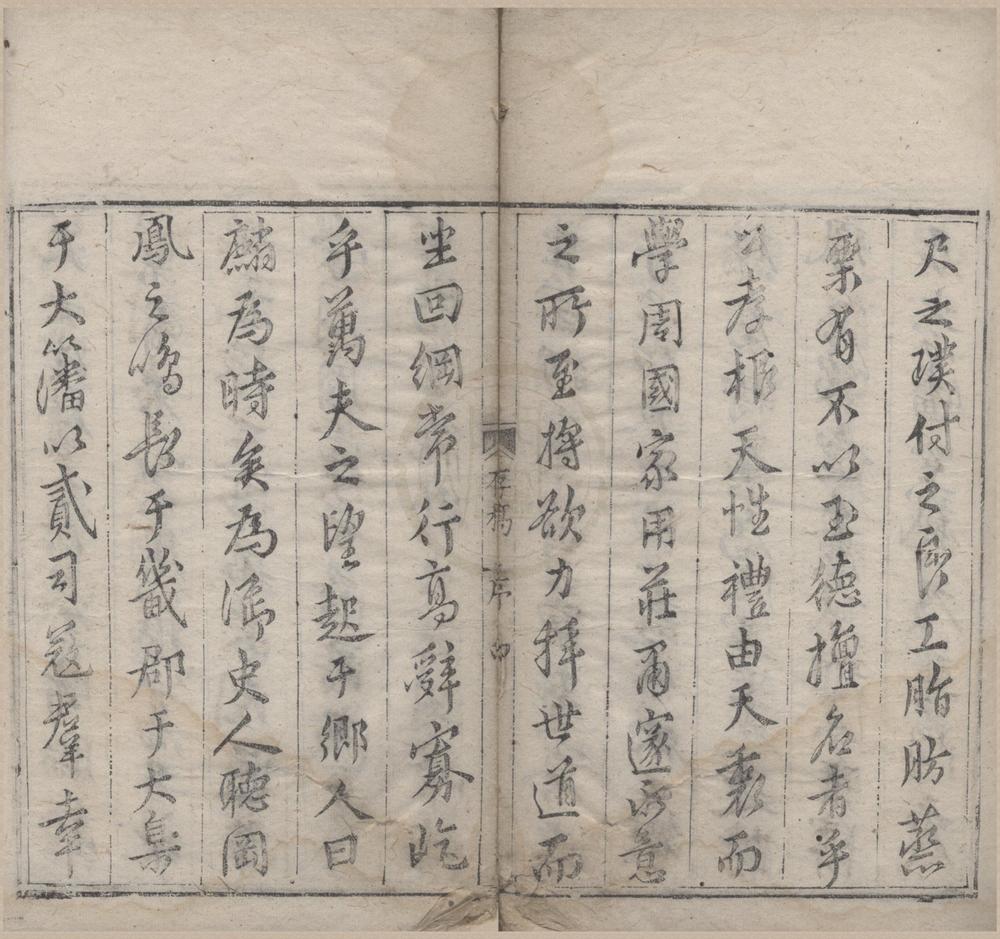 尺之璞付之良工脂肪蒸
栗有不以至德擅名者乎
公孝根天性禮由天衷而
學周國家用莊爾遂
意
之所至摶欲力拜世道而
存稿 序 四
坐回綱常行高辭寡屹
乎萬夫之望起于鄉人曰
麟為時矣為御史人聽岡
鳳之鳴長于畿郡于大梟
于大藩以貳司寇羣辜